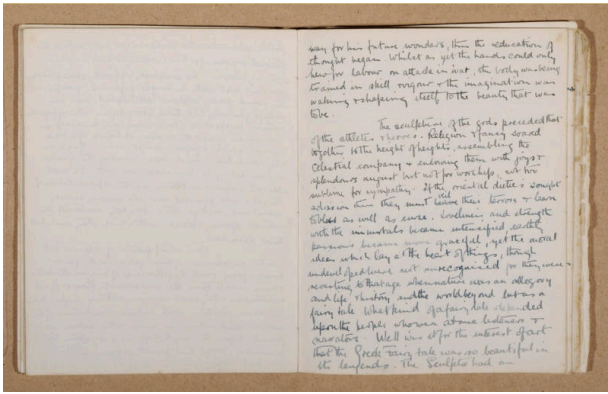 way for his future wonders, thus the education of
thought began. Whilst as yet the hands could only
hew for labour or attack in war, the body was being
trained in skill vigour & the imagination was
waking & shaping itself to the beauty that was
to be.
The sculpture of the gods preceded that
of the athletes & heroes. Religion & fancy soared
together to the height of heights, assembling the
celestial company & endowing them with joys &
splendours august but not for worship, not too
sublime for sympathy. If the oriental deities sought
admission there they must leave their terrors & learn
to bless as well as curse. Loveliness and strength
with the immortals became intensified, earthly
passions became more graceful, yet the moral
ideas which lay at the heart of things, though
undeveloped were not unrecognised for they were
according to that age when nature was an allegory
and life & history and the world beyond but as a
fairy tale. What kind of a fairy tale depended
upon the peoples who were at once listeners &
narrators. Well was it for the interest of art
that the Greek fairy tale was so beautiful in
its legends. The Sculptor had an